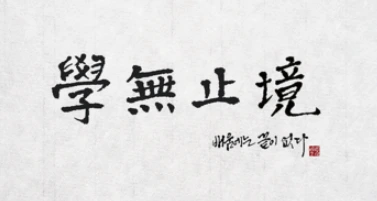 學無止境
배움에는 끝이 없다